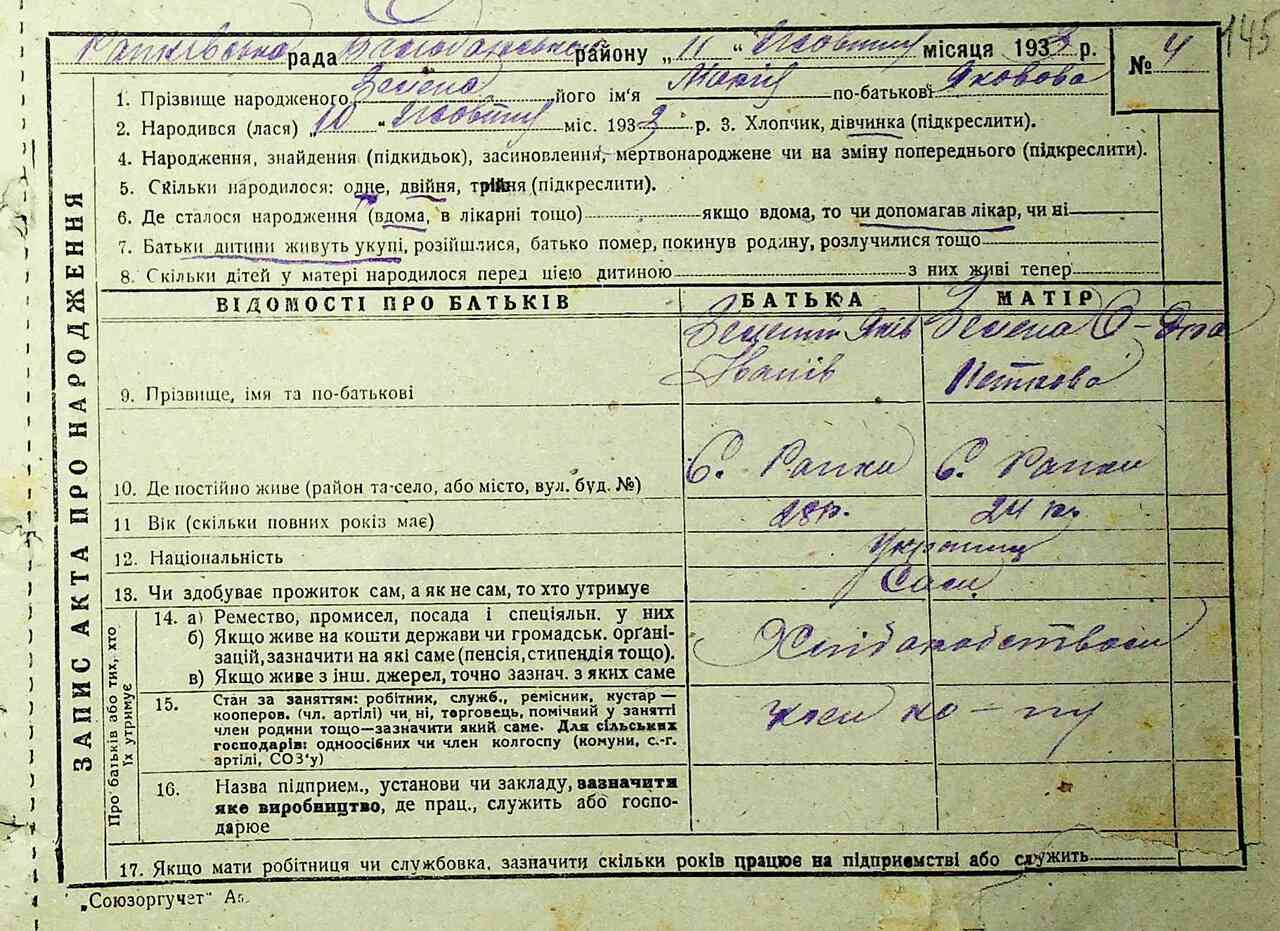 145
рада району „11" Жовтня місяця 1933 р. № 4
1. Прізвище народженого Зелена його ім'я Марія по-батькові Яковова
2. Народився (лася) „10" Жовтня міс. 1933 р. 3. Хлопчик, дівчинка (підкреслити).
4. Народження, знайдення (підкидьок), засиновлення, мертвонароджене чи на зміну попереднього (підкреслити).
5. Скільки народилося: одне, двійня, трійня (підкреслити).
6. Де сталося народження (вдома, в лікарні тощо) якщо вдома, то чи допомагав лікар, чи ні
7. Батьки дитини живуть укупі, розійшлися, батько помер, покинув родину, розлучилися тощо
8. Скільки дітей у матері народилося перед цією дитиною з них живі тепер
ЗАПИС АКТА ПРО НАРОДЖЕННЯ
ВІДОМОСТІ ПРО БАТЬКІВ БАТЬКА МАТІР
Яків Зелена
9. Прізвище, імя та по-батькові Іванів
10. Де постійно живе (район та село, або місто, вул. буд. №) С. Рапки С. Рапки
11 Вік (скільки повних років має) 28 р. 24 р.
12. Національність Украінці
13. Чи здобуває прожиток сам, а як не сам, то хто утримує Сами
Про батьків або тих, хто їх утримує
14. а) Ремество, промисел, посада і спеціяльн. у них
б) Якщо живе на кошти держави чи громадськ. орґані-
зацій, зазначити на які саме (пенсія, стипендія тощо). Хліборобством
в) Якщо живе з інш. джерел, точно зазнач. з яких саме
15. Стан за заняттям: робітник, служб., ремісник, кустар —
кооперов. (чл. артілі) чи ні, торговець, помічний у занятті
член родини тощо—зазначити який саме. Для сільських
господарів: одноосібних чи член колгоспу (комуни, с.-г.
артілі, СОЗ'у)
16. Назва підприєм., установи чи закладу, зазначити
яке виробництво, де прац., служить або госпо-
дарює
17. Якщо мати робітниця чи службовка, зазначити скільки років працює на підприємстві або служить
„Союзоргучет"